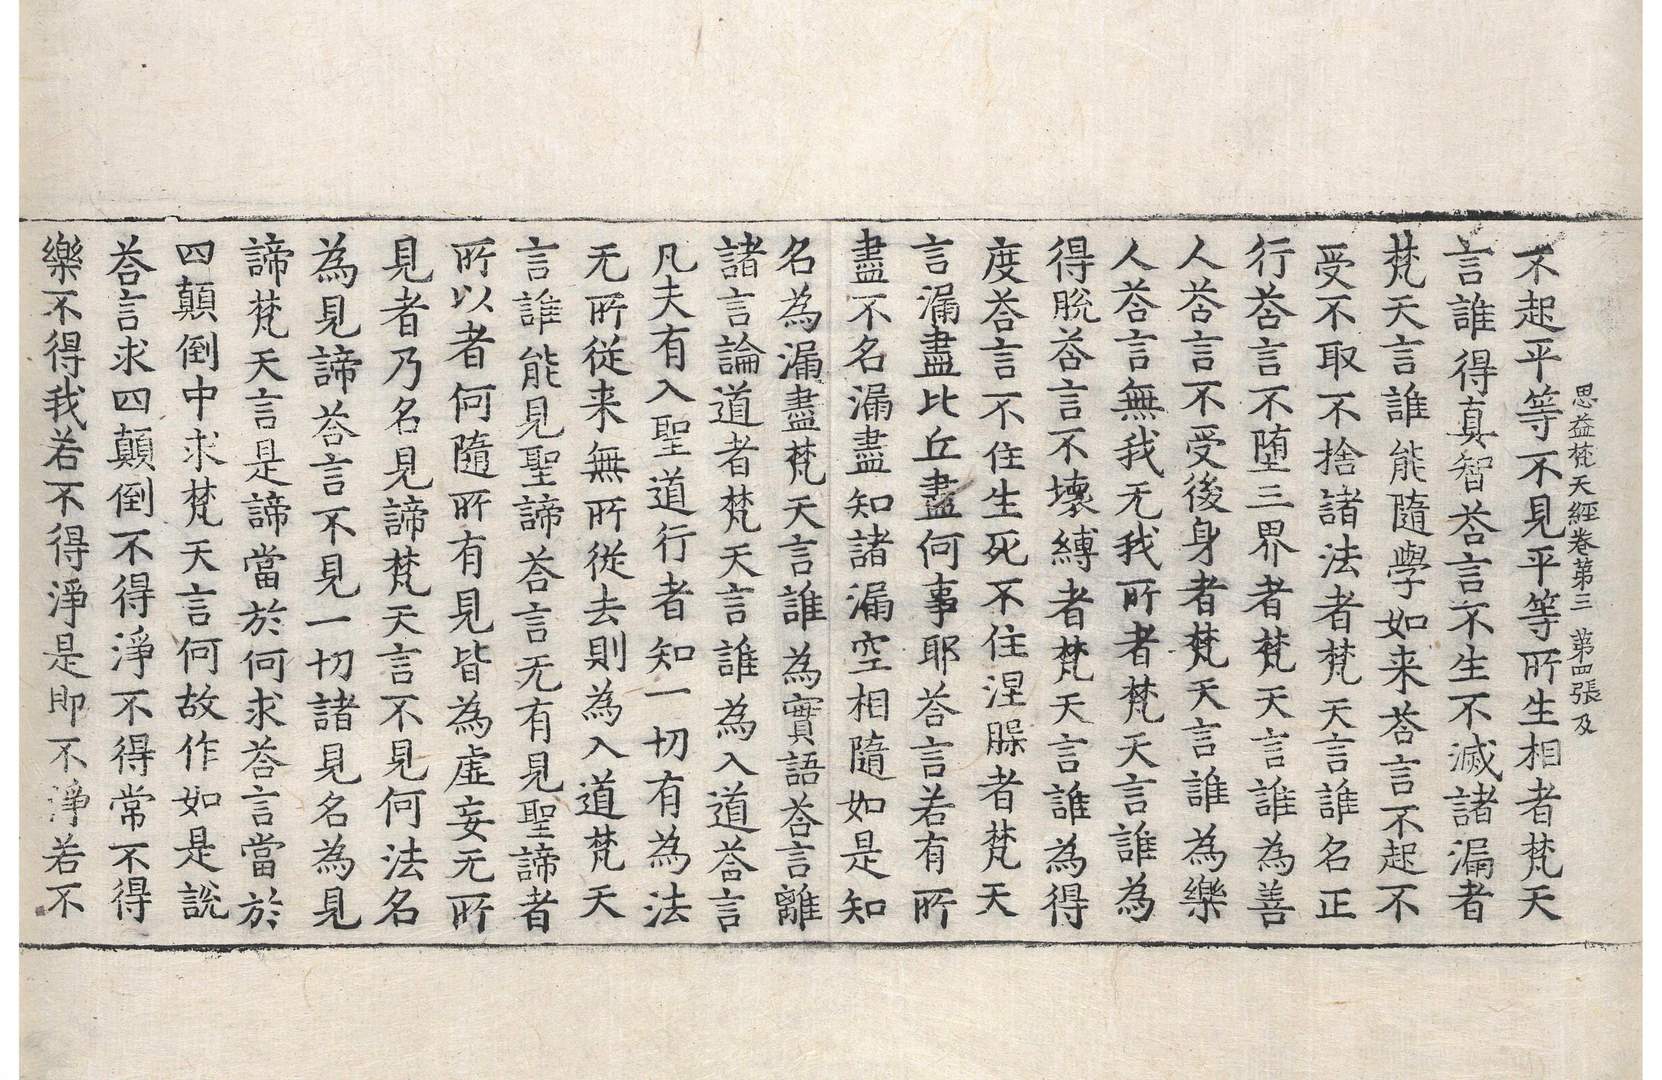 思益梵天經卷第三　第四張　及
不起平等不見平等所生相者梵天
言誰得真智荅言不生不滅諸漏者
梵天言誰能隨學如来荅言不起不
受不取不捨諸法者梵天言誰名正
行荅言不墮三界者梵天言誰為善
人荅言不受後身者梵天言誰為樂
人荅言無我无我所者梵天言誰為
得脫荅言不壞縛者梵天言誰為得
度荅言不住生死不住涅槃者梵天
言漏盡比丘盡何事耶荅言若有所
盡不名漏盡知諸漏空相隨如是知
名為漏盡梵天言誰為實語荅言離
諸言論道者梵天言誰為入道荅言
凡夫有入聖道行者知一切有為法
无所從来無所從去則為入道梵天
言誰能見聖諦荅言无有見聖諦者
所以者何隨所有見皆為虛妄无所
見者乃名見諦梵天言不見何法名
為見諦荅言不見一切諸見名為見
諦梵天言是諦當於何求荅言當於
四顛倒中求梵天言何故作如是說
荅言求四顛倒不得淨不得常不得
樂不得我若不得淨是即不淨若不